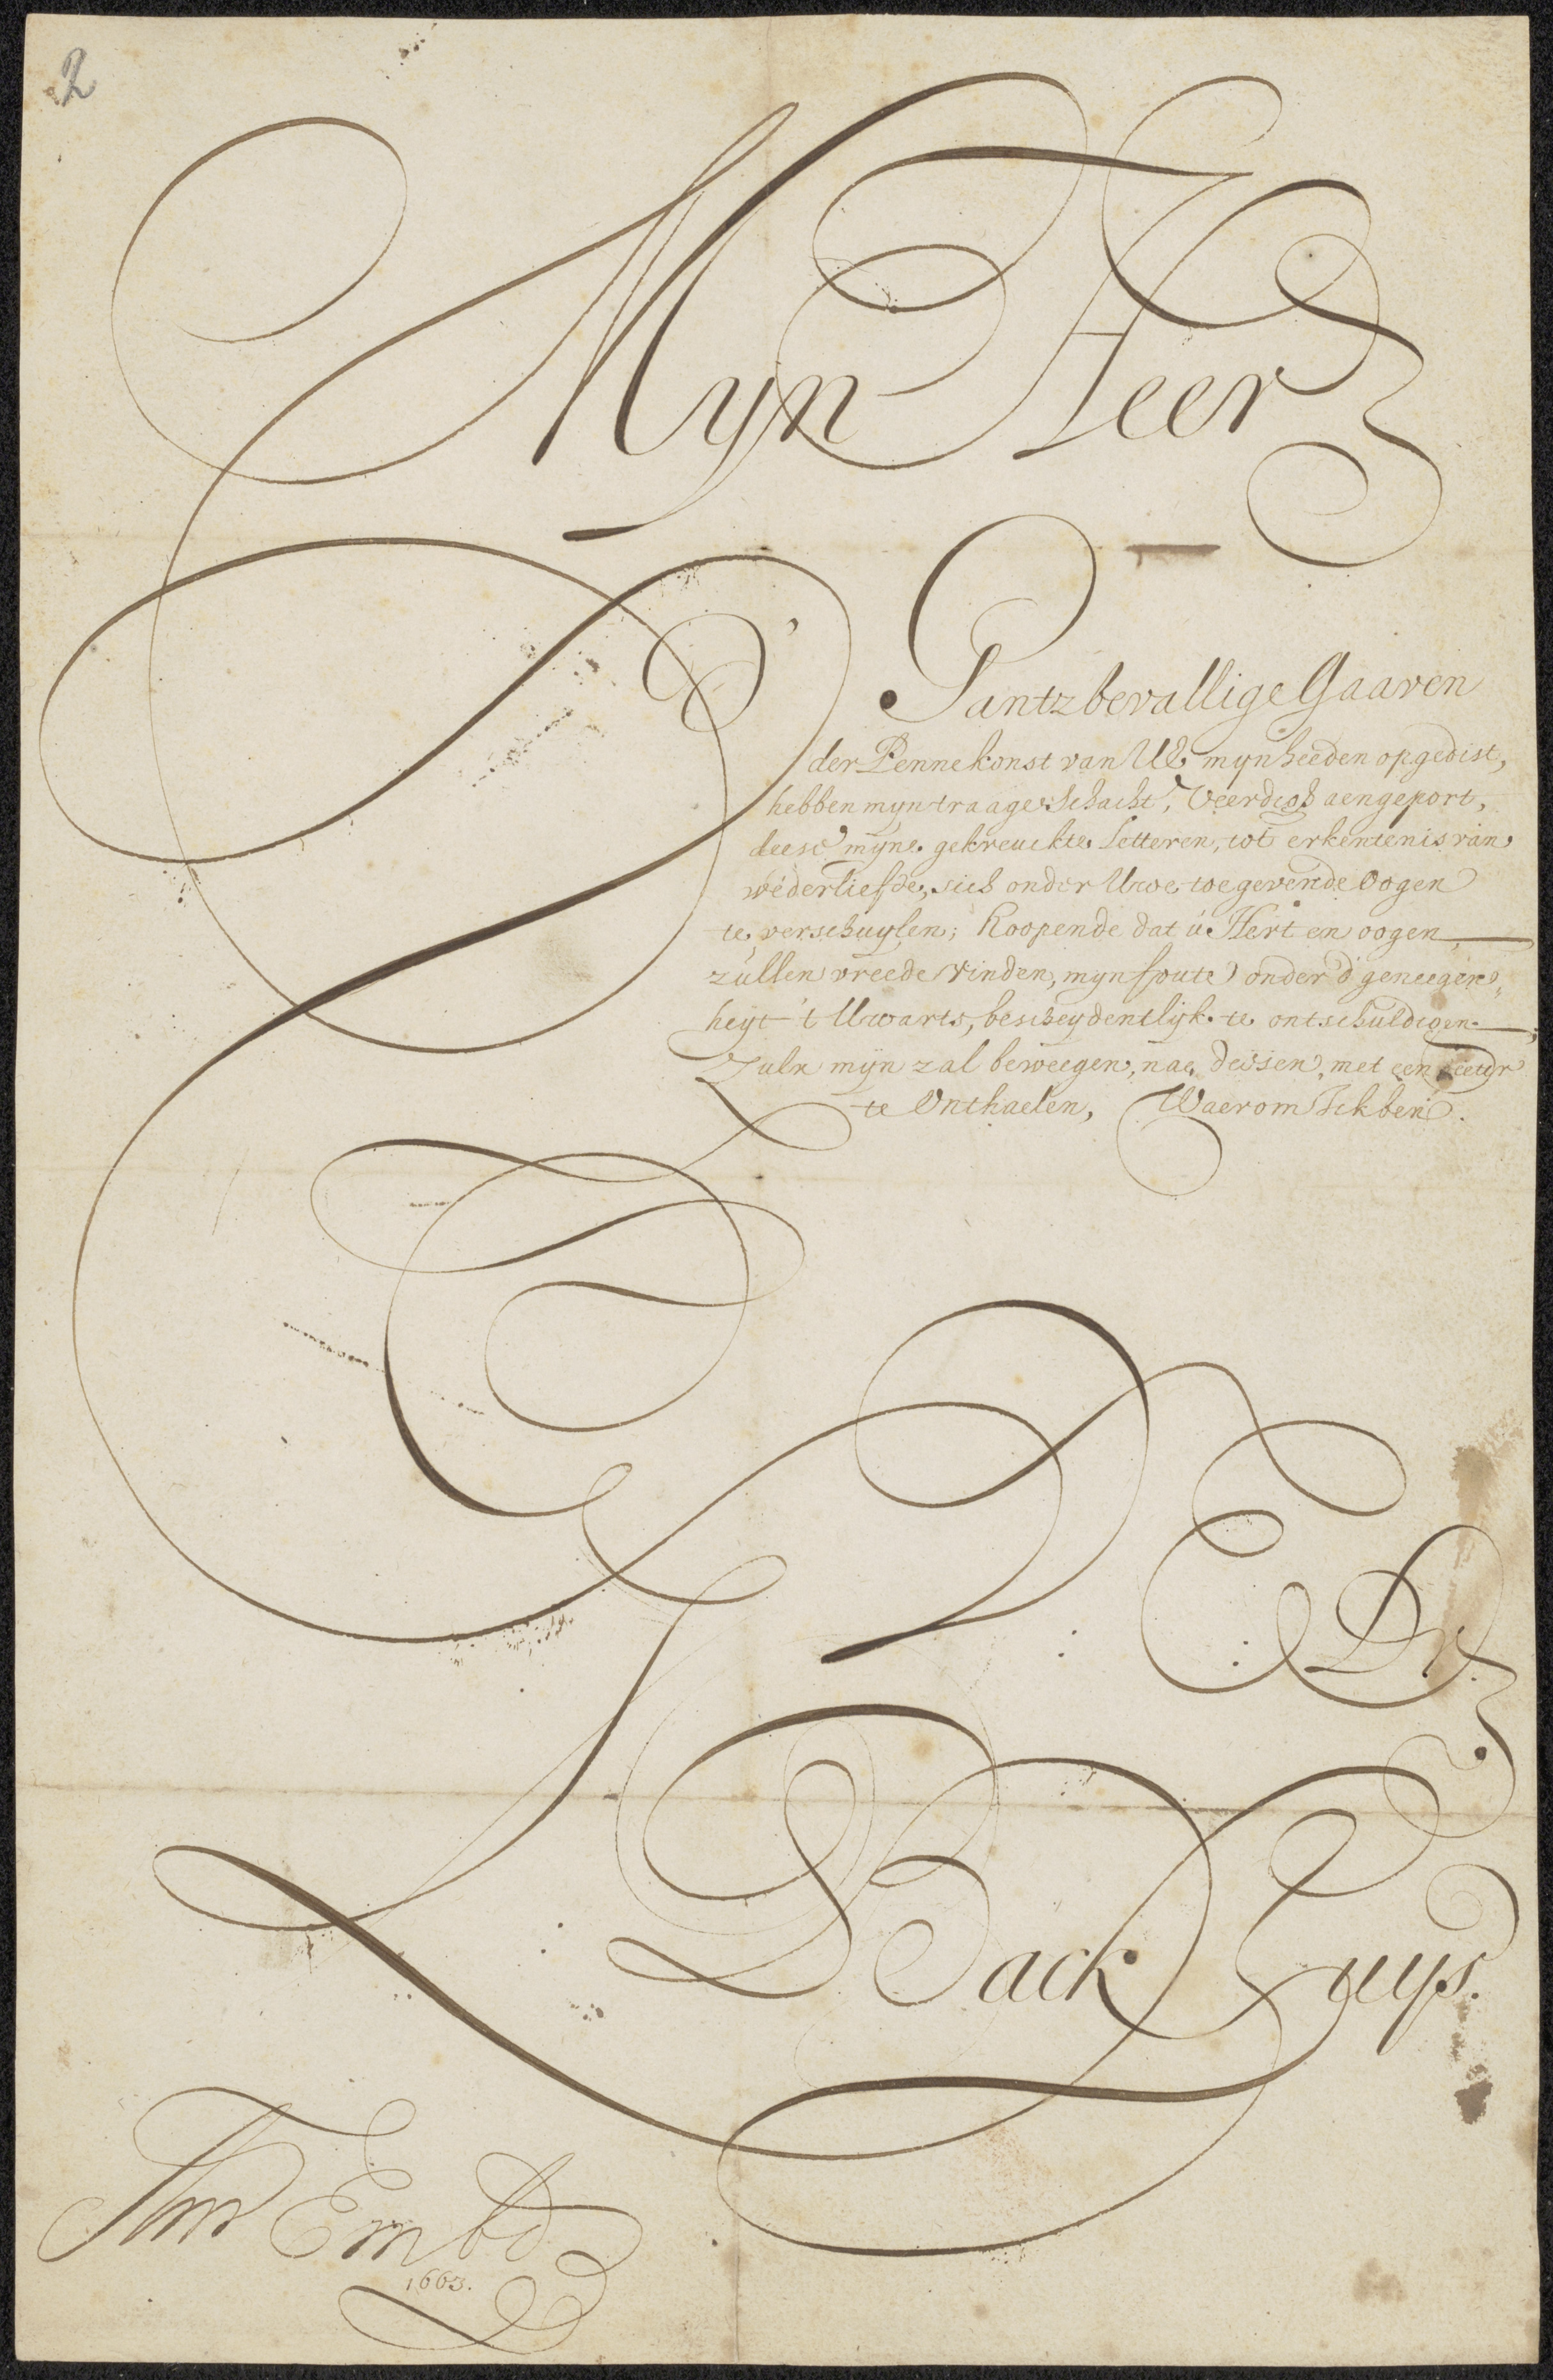 2
Myn Heer
Gantz bevallige Gaaven
der Pennekonst van UE, myn heeden opgedist,
hebben myn traage Schacht, Veerdigh aengeport,
deese myne gekreuckte Letteren, tot erkentenis van
wederliefde, sich onder Uwe toegevende Oogen
te verschuylen; hoopende dat u Hert en oogen,
zullen vreede vinden, myn foute onder d'geneegen-
heyt 't Uwarts, bescheydentlyk te ontschuldigen
Zulx myn zal beweegen, nae deesen, met een
te Onthaelen, Waerom Ick ben.
E: Dr.
Back Guys.
Embd
1665.